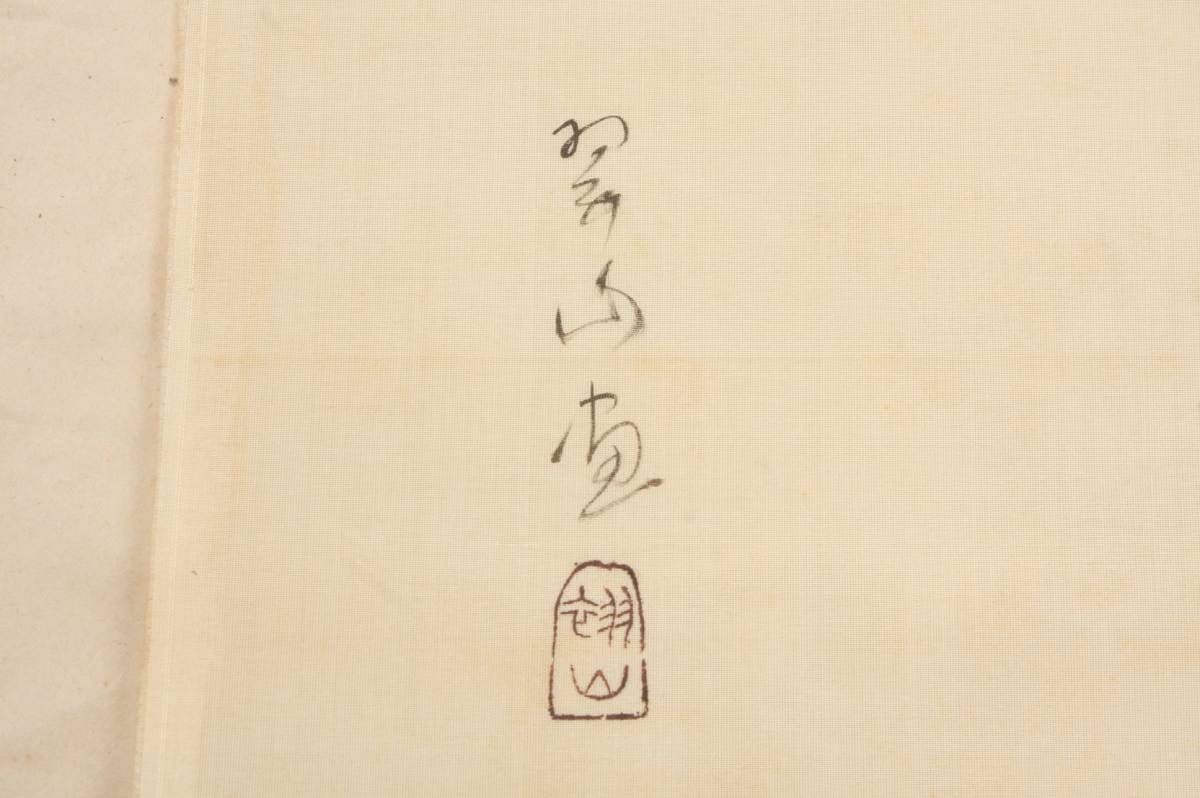 翠山画
翠山